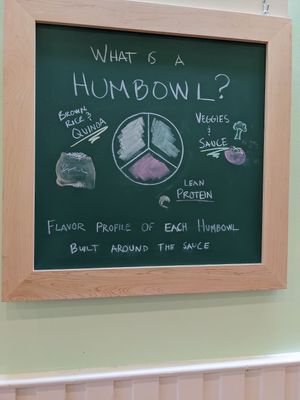 WHAT IS A
HUMBOWL?
BROWN
RICE &
QUINOA
VEGGIES
&
SAUCE
LEAN
PROTEIN
FLAVOR PROFILE OF EACH HUMBOWL
BUILT AROUND THE SAUCE